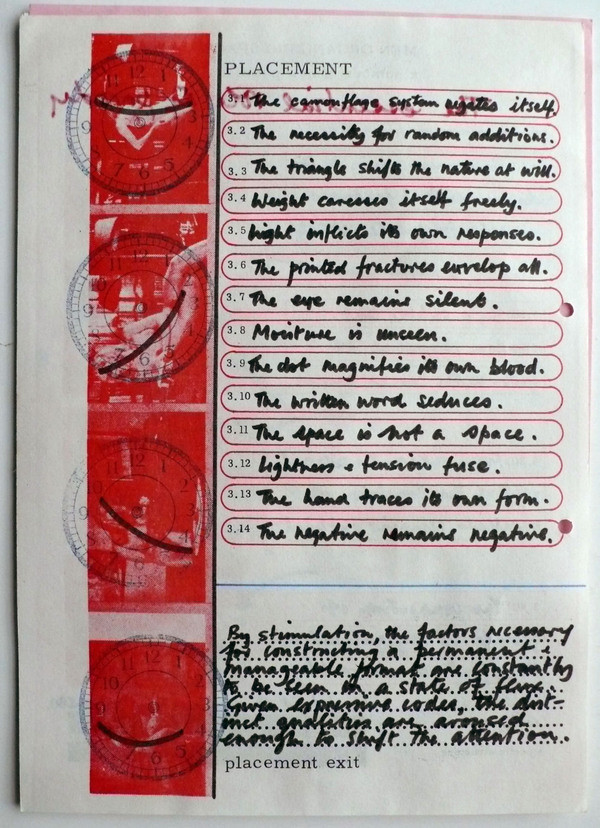 PLACEMENT
3.1 The camouflage system negates itself.
3.2 The necessity for random additions.
3.3 The triangle shifts the nature at will.
3.4 Weight caresses itself freely.
3.5 Light inflicts its own responses.
3.6 The printed fractures envelop all.
3.7 The eye remains silent.
3.8 Moisture is unseen.
3.9 The dot magnifies its own blood.
3.10 The written word seduces.
3.11 The space is not a space.
3.12 Lightness & tension fuse.
3.13 The hand traces its own form.
3.14 The negative remains negative.
By stimulation, the factors necessary
for constructing a permanent &
manageable format are constantly
to be seen in a state of flux.
Given expressive codes, the dist-
inct qualities are aroused
enough to shift the attention.
placement exit